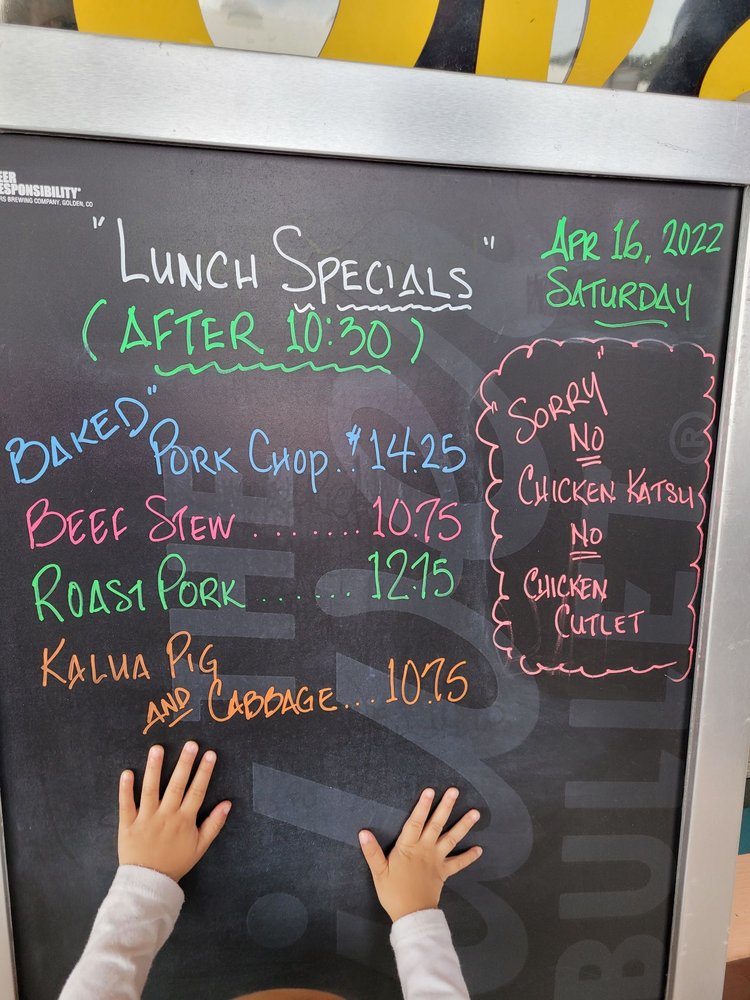 ESPONSIBILITY
RS BREWING COMPANY, GOLDEN, CO
"LUNCH SPECIALS"
(AFTER 10:30)
APR 16, 2022
SATURDAY
BAKED" PORK CHOP..$14.25
BEEF STEW ........ 10.75
ROAST PORK ....... 12.75
KALUA PIG
AND CABBAGE... 10.75
"SORRY"
NO
CHICKEN KATSU
NO
CHICKEN
CUTLET
THE
Silver
BULLET®